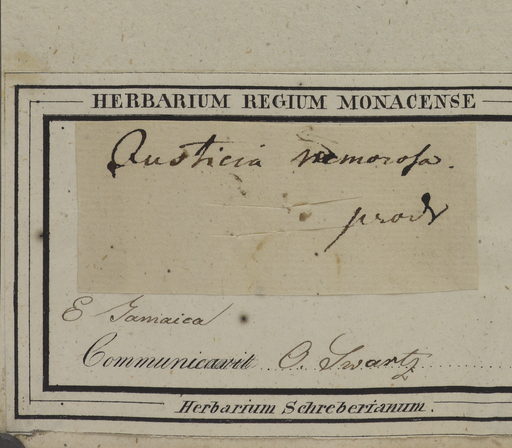 HERBARIUM REGIUM MONACENSE
Justicia nemorosa.
prodr
E Jamaica
Communicavit O. Swartz
Herbarium Schreberianum.